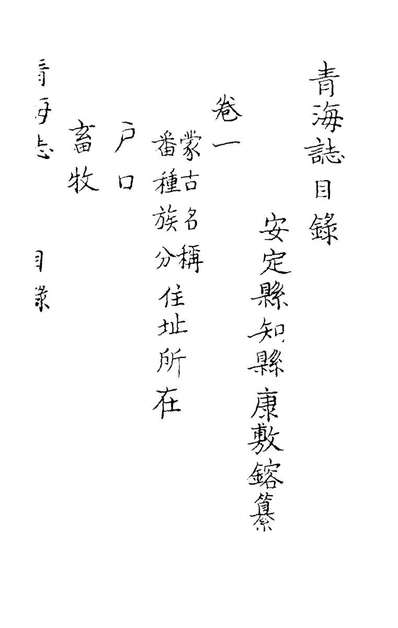 青海誌目錄
安定縣知縣康敷鎔纂
卷一
蒙古名稱
番種族分住址所在
户口
畜牧
青海志 目录